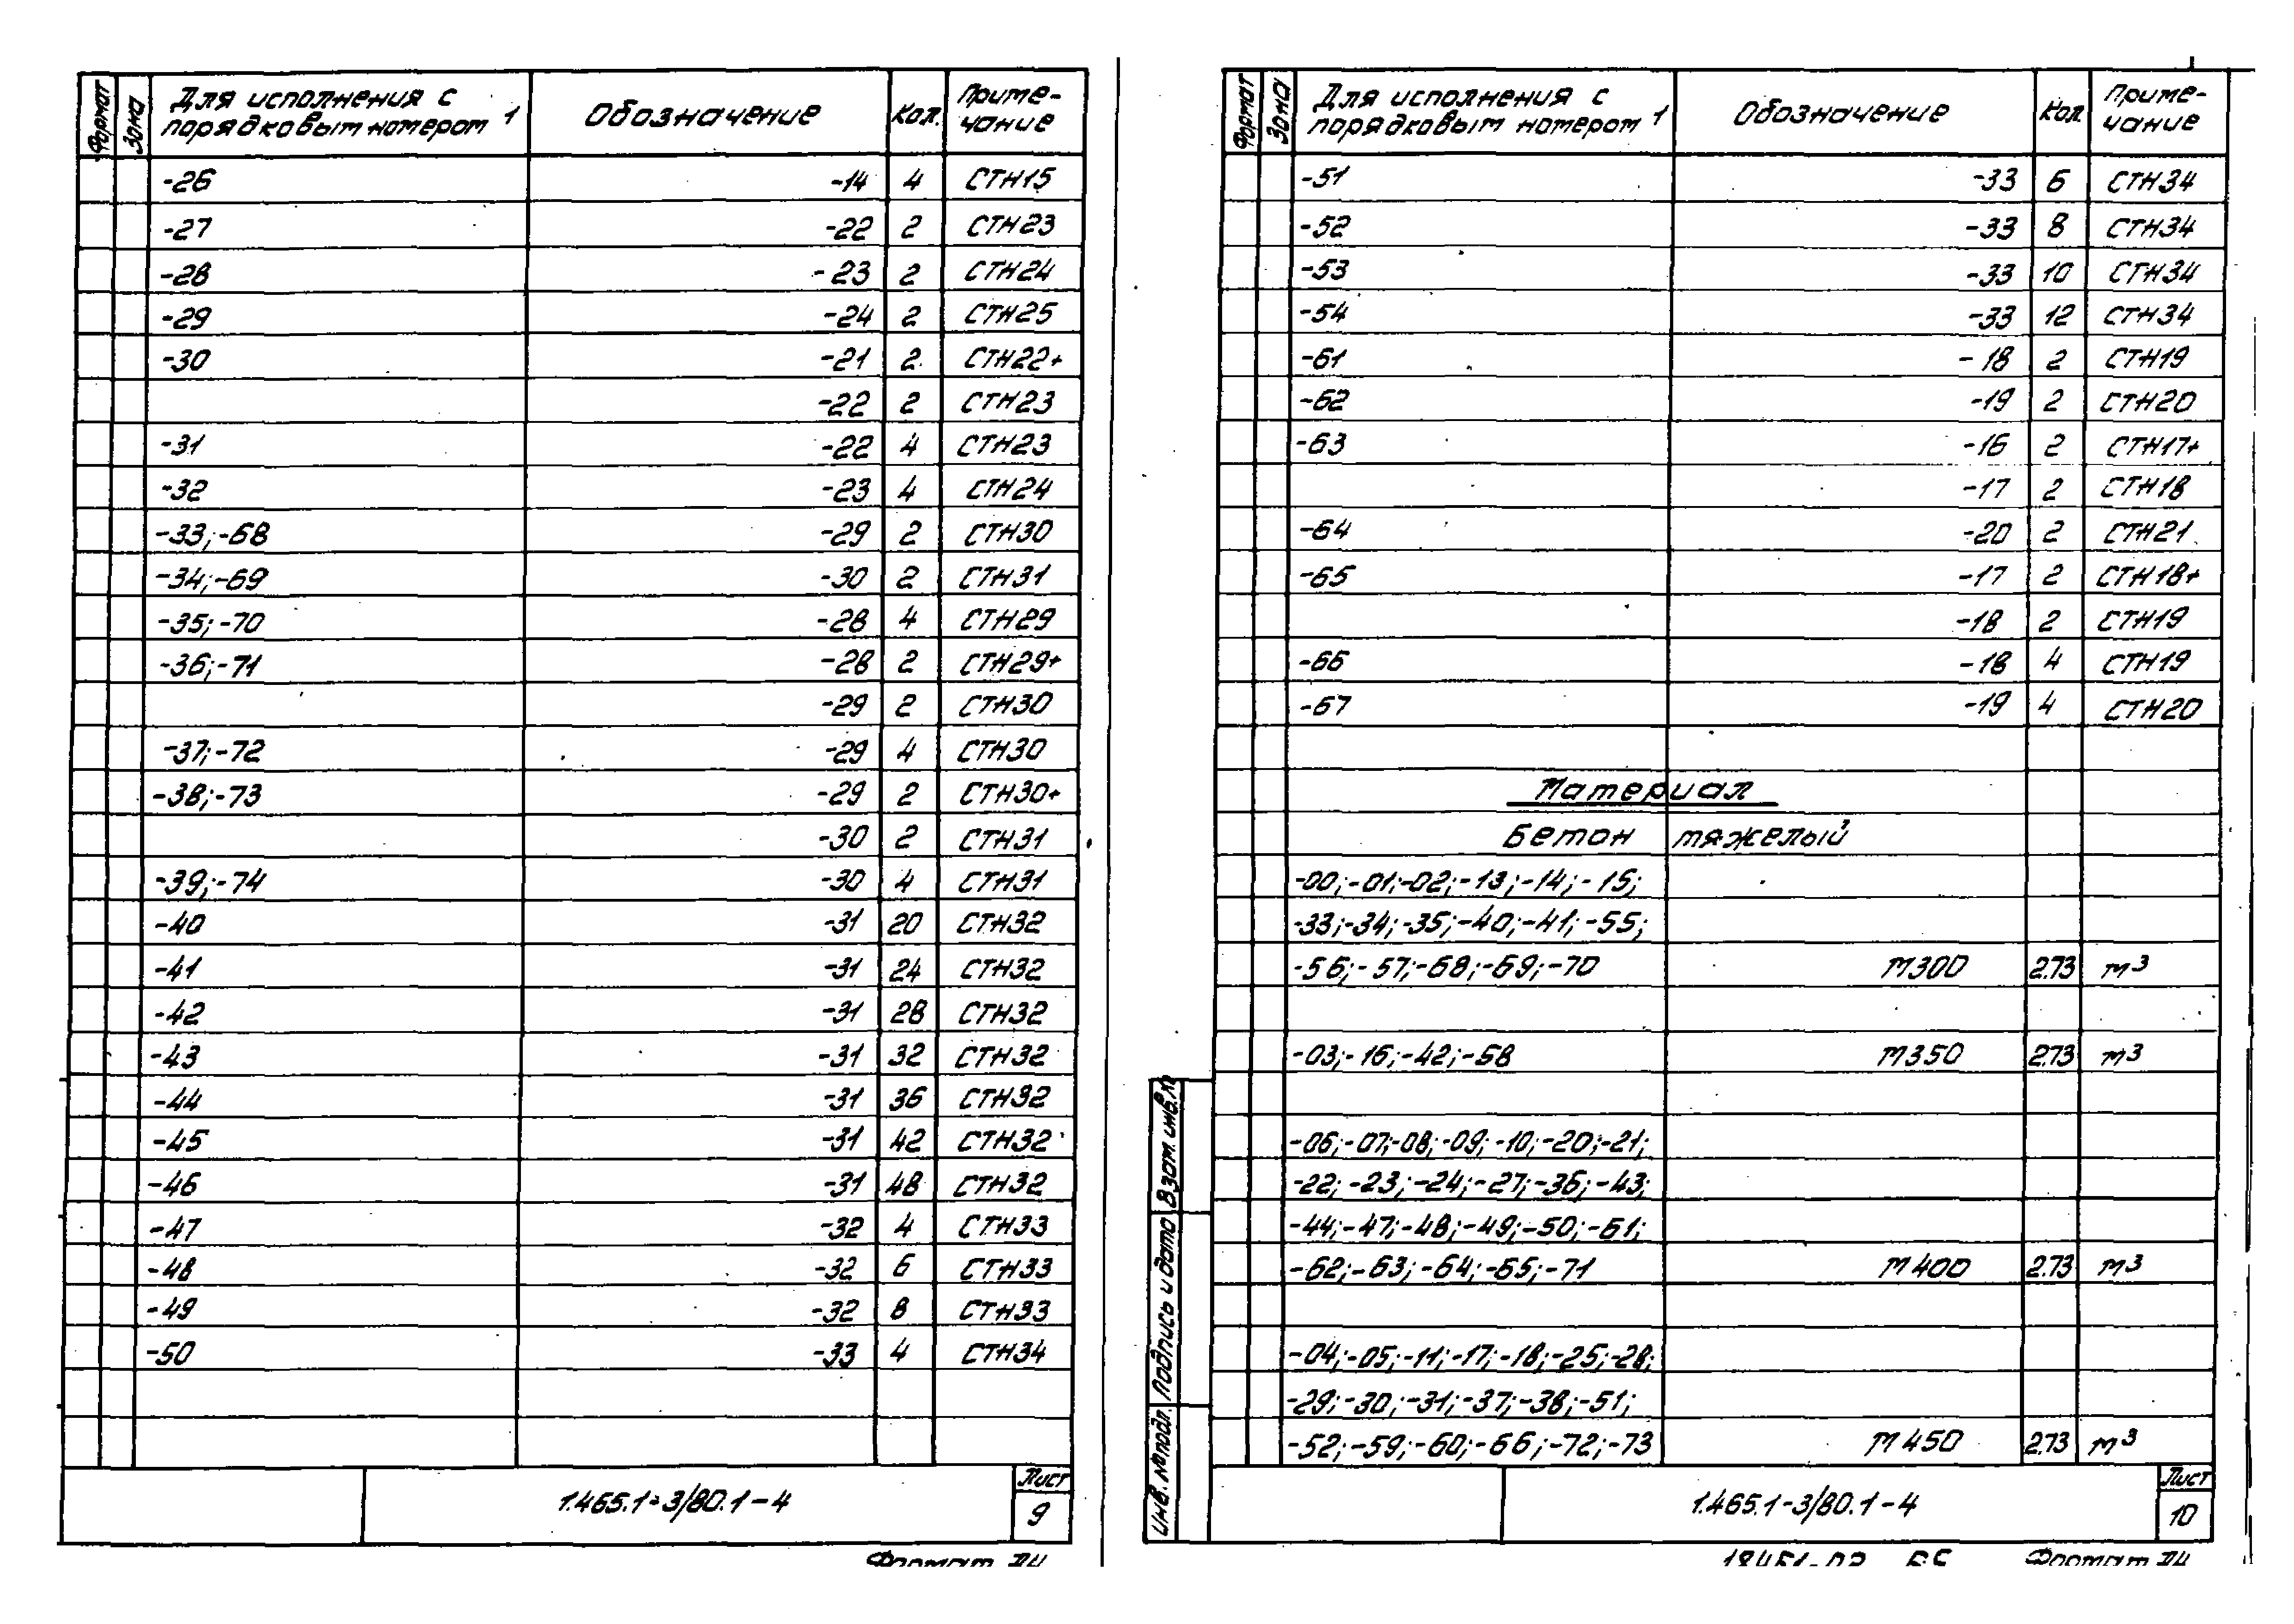 Формат Зона Для исполнения с порядковым номером 1 Обозначение Кол. Приме-чание
-26 -14 4 СТН15
-27 -22 2 СТН23
-28 -23 2 СТН24
-29 -24 2 СТН25
-30 -21 2 СТН22+
-22 2 СТН23
-31 -22 4 СТН23
-32 -23 4 СТН24
-33;-68 -29 2 СТН30
-34;-69 -30 2 СТН31
-35;-70 -28 4 СТН29
-36;-71 -28 2 СТН29+
-29 2 СТН30
-37;-72 -29 4 СТН30
-38;-73 -29 2 СТН30+
-30 2 СТН31
-39;-74 -30 4 СТН31
-40 -31 20 СТН32
-41 -31 24 СТН32
-42 -31 28 СТН32
-43 -31 32 СТН32
-44 -31 36 СТН32
-45 -31 42 СТН32
-46 -31 48 СТН32
-47 -32 4 СТН33
-48 -32 6 СТН33
-49 -32 8 СТН33
-50 -33 4 СТН34
1.465.1-3/80.1-4
Лист
9
Формат А4
Формат Зона Для исполнения с порядковым номером 1 Обозначение Кол. Приме-чание
-51 -33 6 СТН34
-52 -33 8 СТН34
-53 -33 10 СТН34
-54 -33 12 СТН34
-61 -18 2 СТН19
-62 -19 2 СТН20
-63 -16 2 СТН17+
-17 2 СТН18
-64 -20 2 СТН21
-65 -17 2 СТН18+
-18 2 СТН19
-66 -18 4 СТН19
-67 -19 4 СТН20
Материал
Бетон тяжелый
-00;-01;-02;-13;-14;-15;
-33;-34;-35;-40;-41;-55;
-56;-57;-68;-69;-70 М300 2.73 м³
-03;-16;-42;-58 М350 2.73 м³
-06;-07;-08;-09;-10;-20;-21;
-22;-23;-24;-27;-36;-43;
-44;-47;-48;-49;-50;-61;
-62;-63;-64;-65;-71 М400 2.73 м³
-04;-05;-11;-17;-18;-25;-28;
-29;-30;-31;-37;-38;-51;
-52;-59;-60;-66;-72;-73 М450 2.73 м³
Инв. № подл. Подпись и дата Взам. инв. №
1.465.1-3/80.1-4
Лист
10
Формат А4